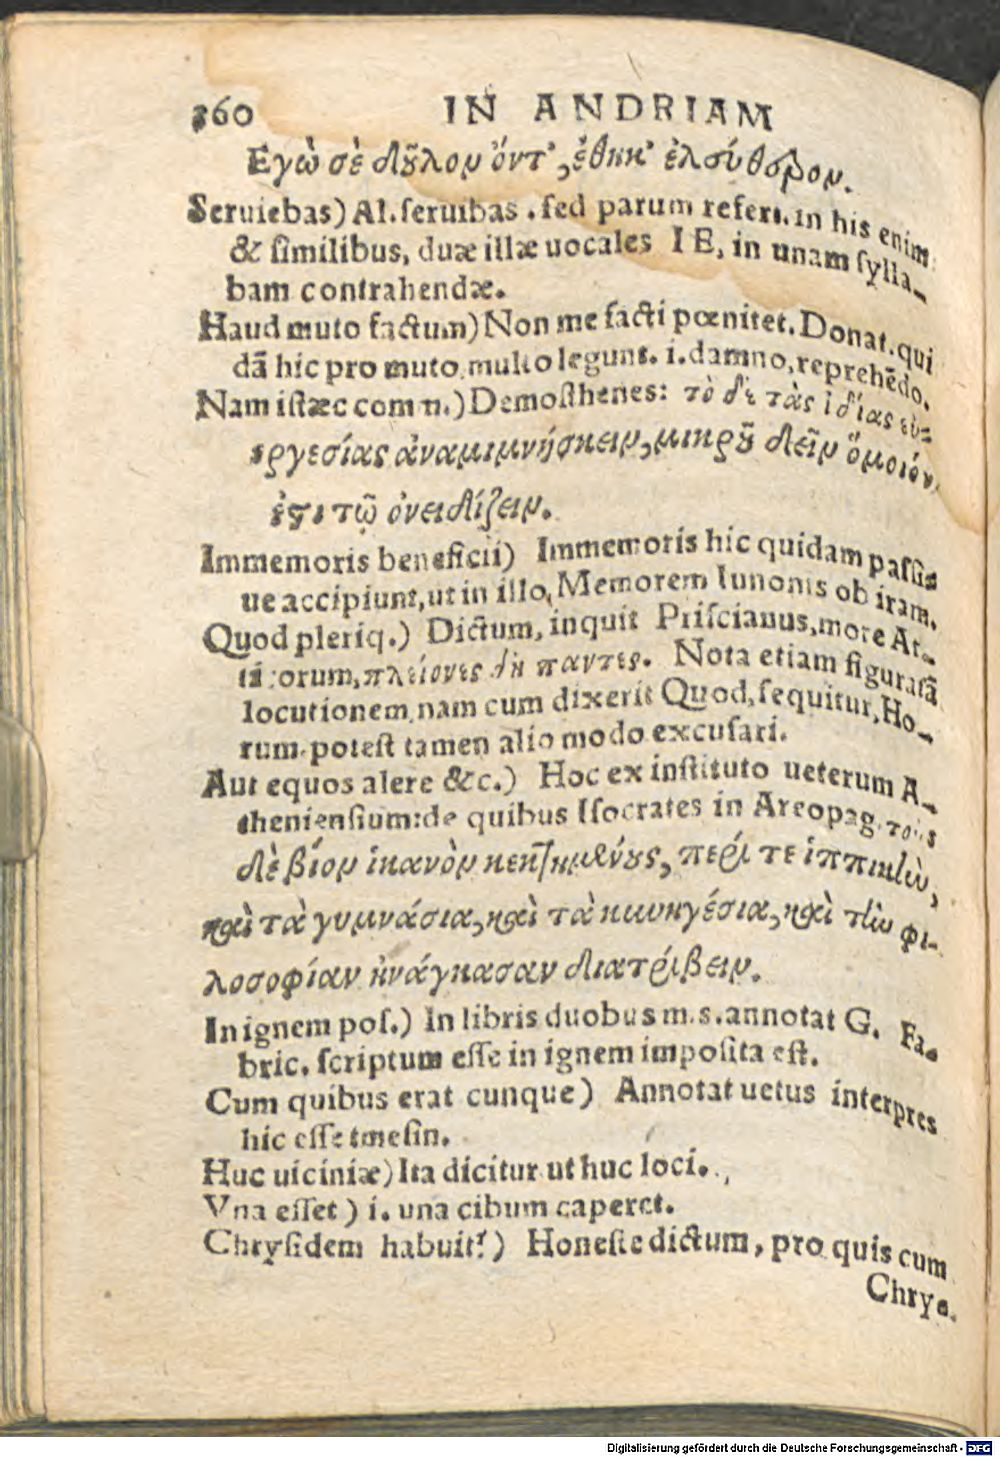 360 IN ANDRIAM
Εγὼ σὲ δοῦλον ὄντ', ἔθηκ' ἐλεύθερον.
Seruiebas) Al. ſeruibas. ſed parum refert. in his enim
& ſimilibus, duæ illæ uocales I E, in unam ſylla-
bam contrahendæ.
Haud muto factum) Non me facti pœnitet. Donat. qui
dã hic pro muto, multo legunt. i. damno, reprehẽdo.
Nam iſtæc comm.) Demoſthenes: τὸ δὲ τὰς ἰδίας εὐ-
εργεσίας ἀναμιμνήσκειν, μικροῦ δεῖν ὅμοιόν
ἐστι τῷ ὀνειδίζειν.
Immemoris beneficii) Immemoris hic quidam paſſi-
ue accipiunt, ut in illo, Memorem Iunonis ob iram.
Quod pleriq.) Dictum, inquit Priſcianus, more At-
ticorum, πλείονες δὴ παντες. Nota etiam figuratã
locutionem, nam cum dixerit Quod, ſequitur, Ho-
rum. poteſt tamen alio modo excuſari.
Aut equos alere &c.) Hoc ex inſtituto ueterum A-
thenienſium: de quibus Iſocrates in Areopag. τοὺς
δὲ βίον ἱκανὸν κεκτημένους, περὶ τε ἱππικὴν,
καὶ τὰ γυμνάσια, καὶ τὰ κυνηγέσια, καὶ τὴν φι-
λοσοφίαν ἠνάγκασαν διατρίβειν.
In ignem poſ.) In libris duobus m.s. annotat G. Fa-
bric. ſcriptum eſſe in ignem impoſita eſt.
Cum quibus erat cunque) Annotat uetus interpres
hic eſſe tmeſin.
Huc uiciniæ) Ita dicitur ut huc loci.
Vna eſſet) i. una cibum caperet.
Chryſidem habuit?) Honeſte dictum, pro quis cum
Chryſ.
Digitalisierung gefördert durch die Deutsche Forschungsgemeinschaft - DFG